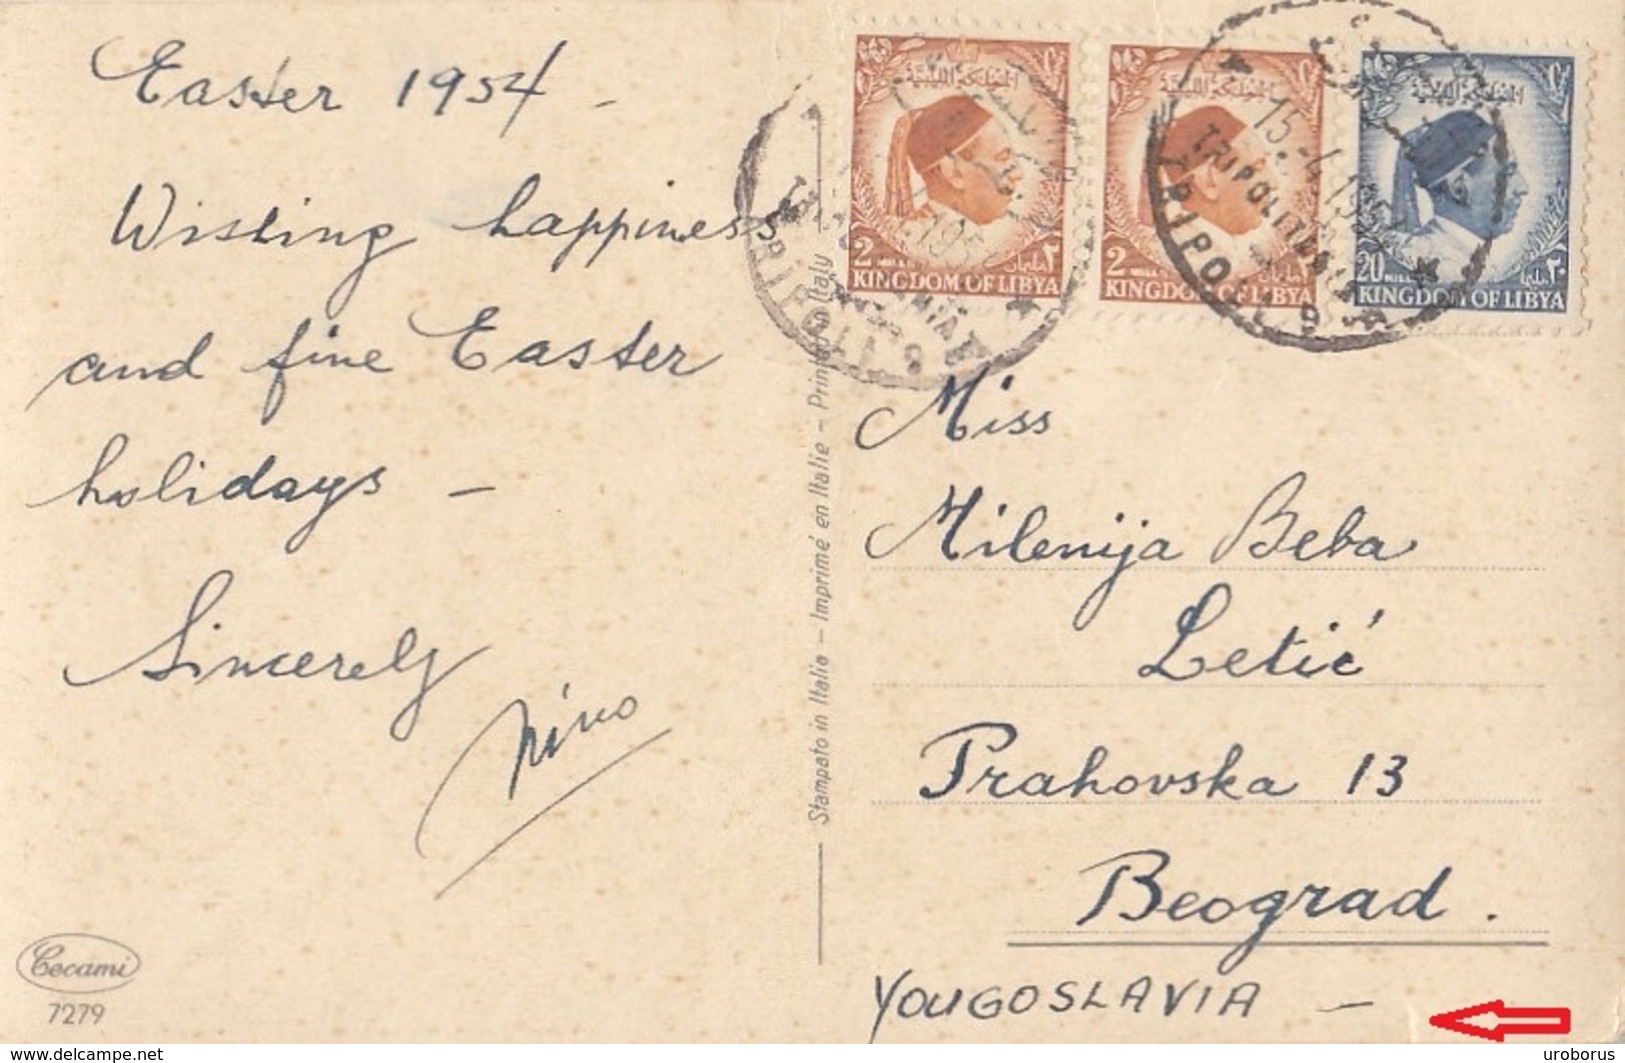 Easter 1954 -
Wishing happiness
and fine Easter
holidays -
Sincerely
Nino
Cecami
7279
Stampato in Italia - Imprimé en Italie - Printed in Italy
2 MILLS ٢
KINGDOM OF LIBYA
2 MILLS
KINGDOM OF LIBYA
20 MILLS ٢٠
KINGDOM OF LIBYA
TRIPOLI
15.4.1954
TRIPOLITANIA
TRIPOLI
Miss
Milenija Beba
Letić
Prahovska 13
Beograd.
YOUGOSLAVIA -
www.delcampe.net
uroborus